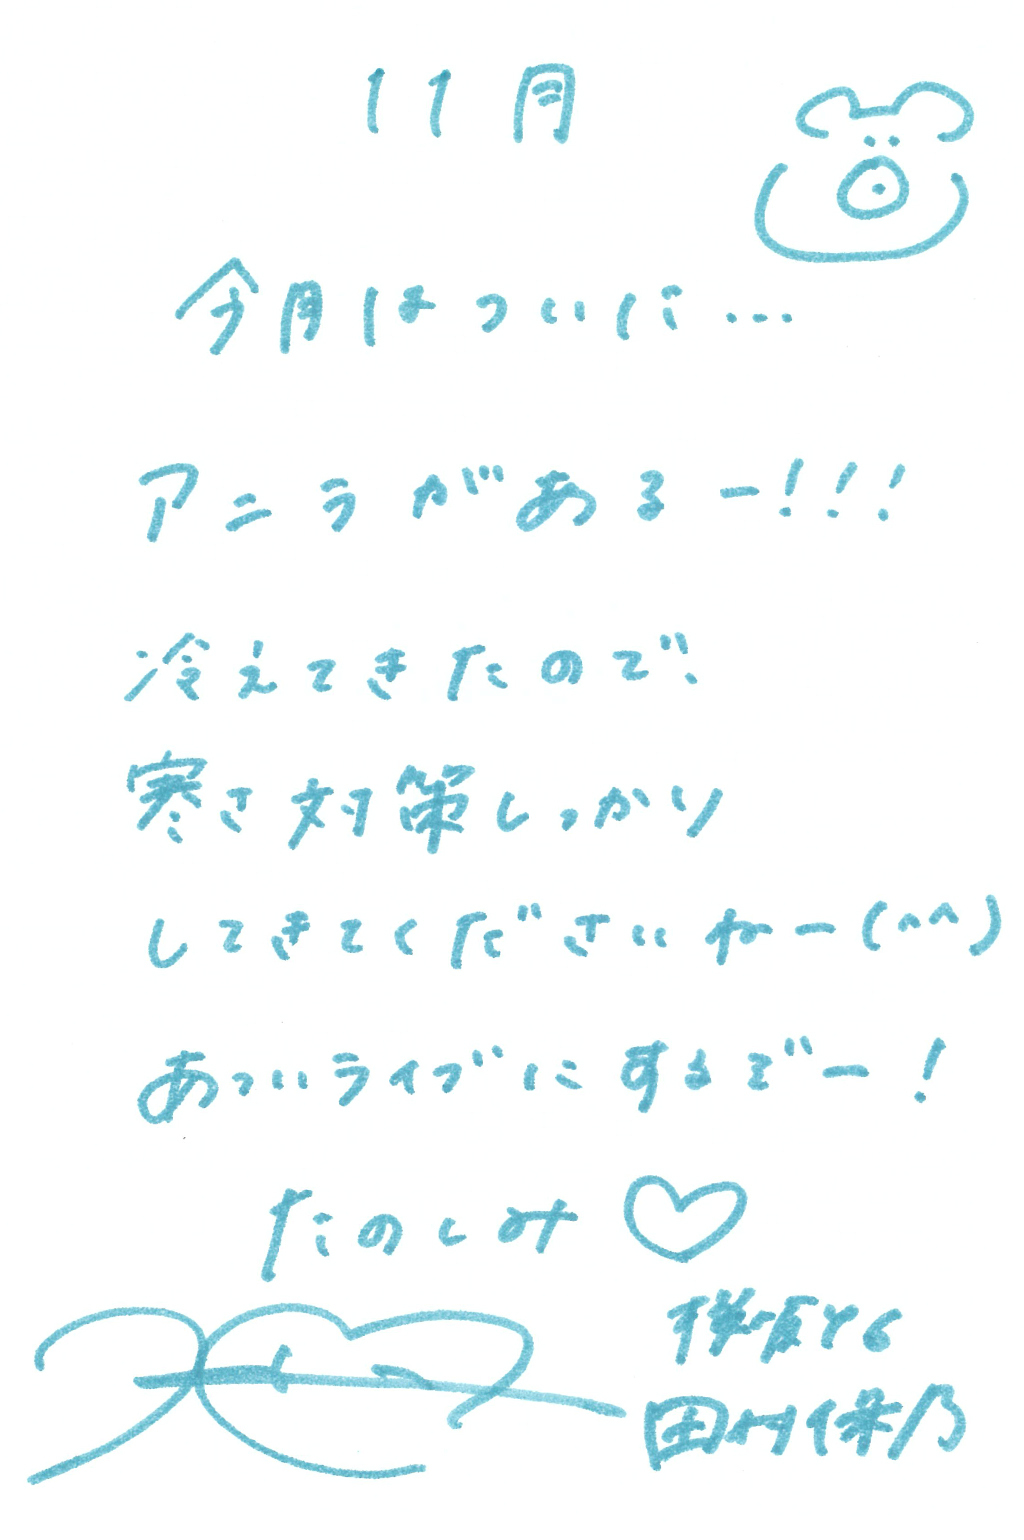 11月
今月はついに...
アニラがあるー!!!
冷えてきたので、
寒さ対策しっかり
してきてくださいねー(^^)
あついライブにするぞー!
たのしみ♡
櫻坂46
田村保乃